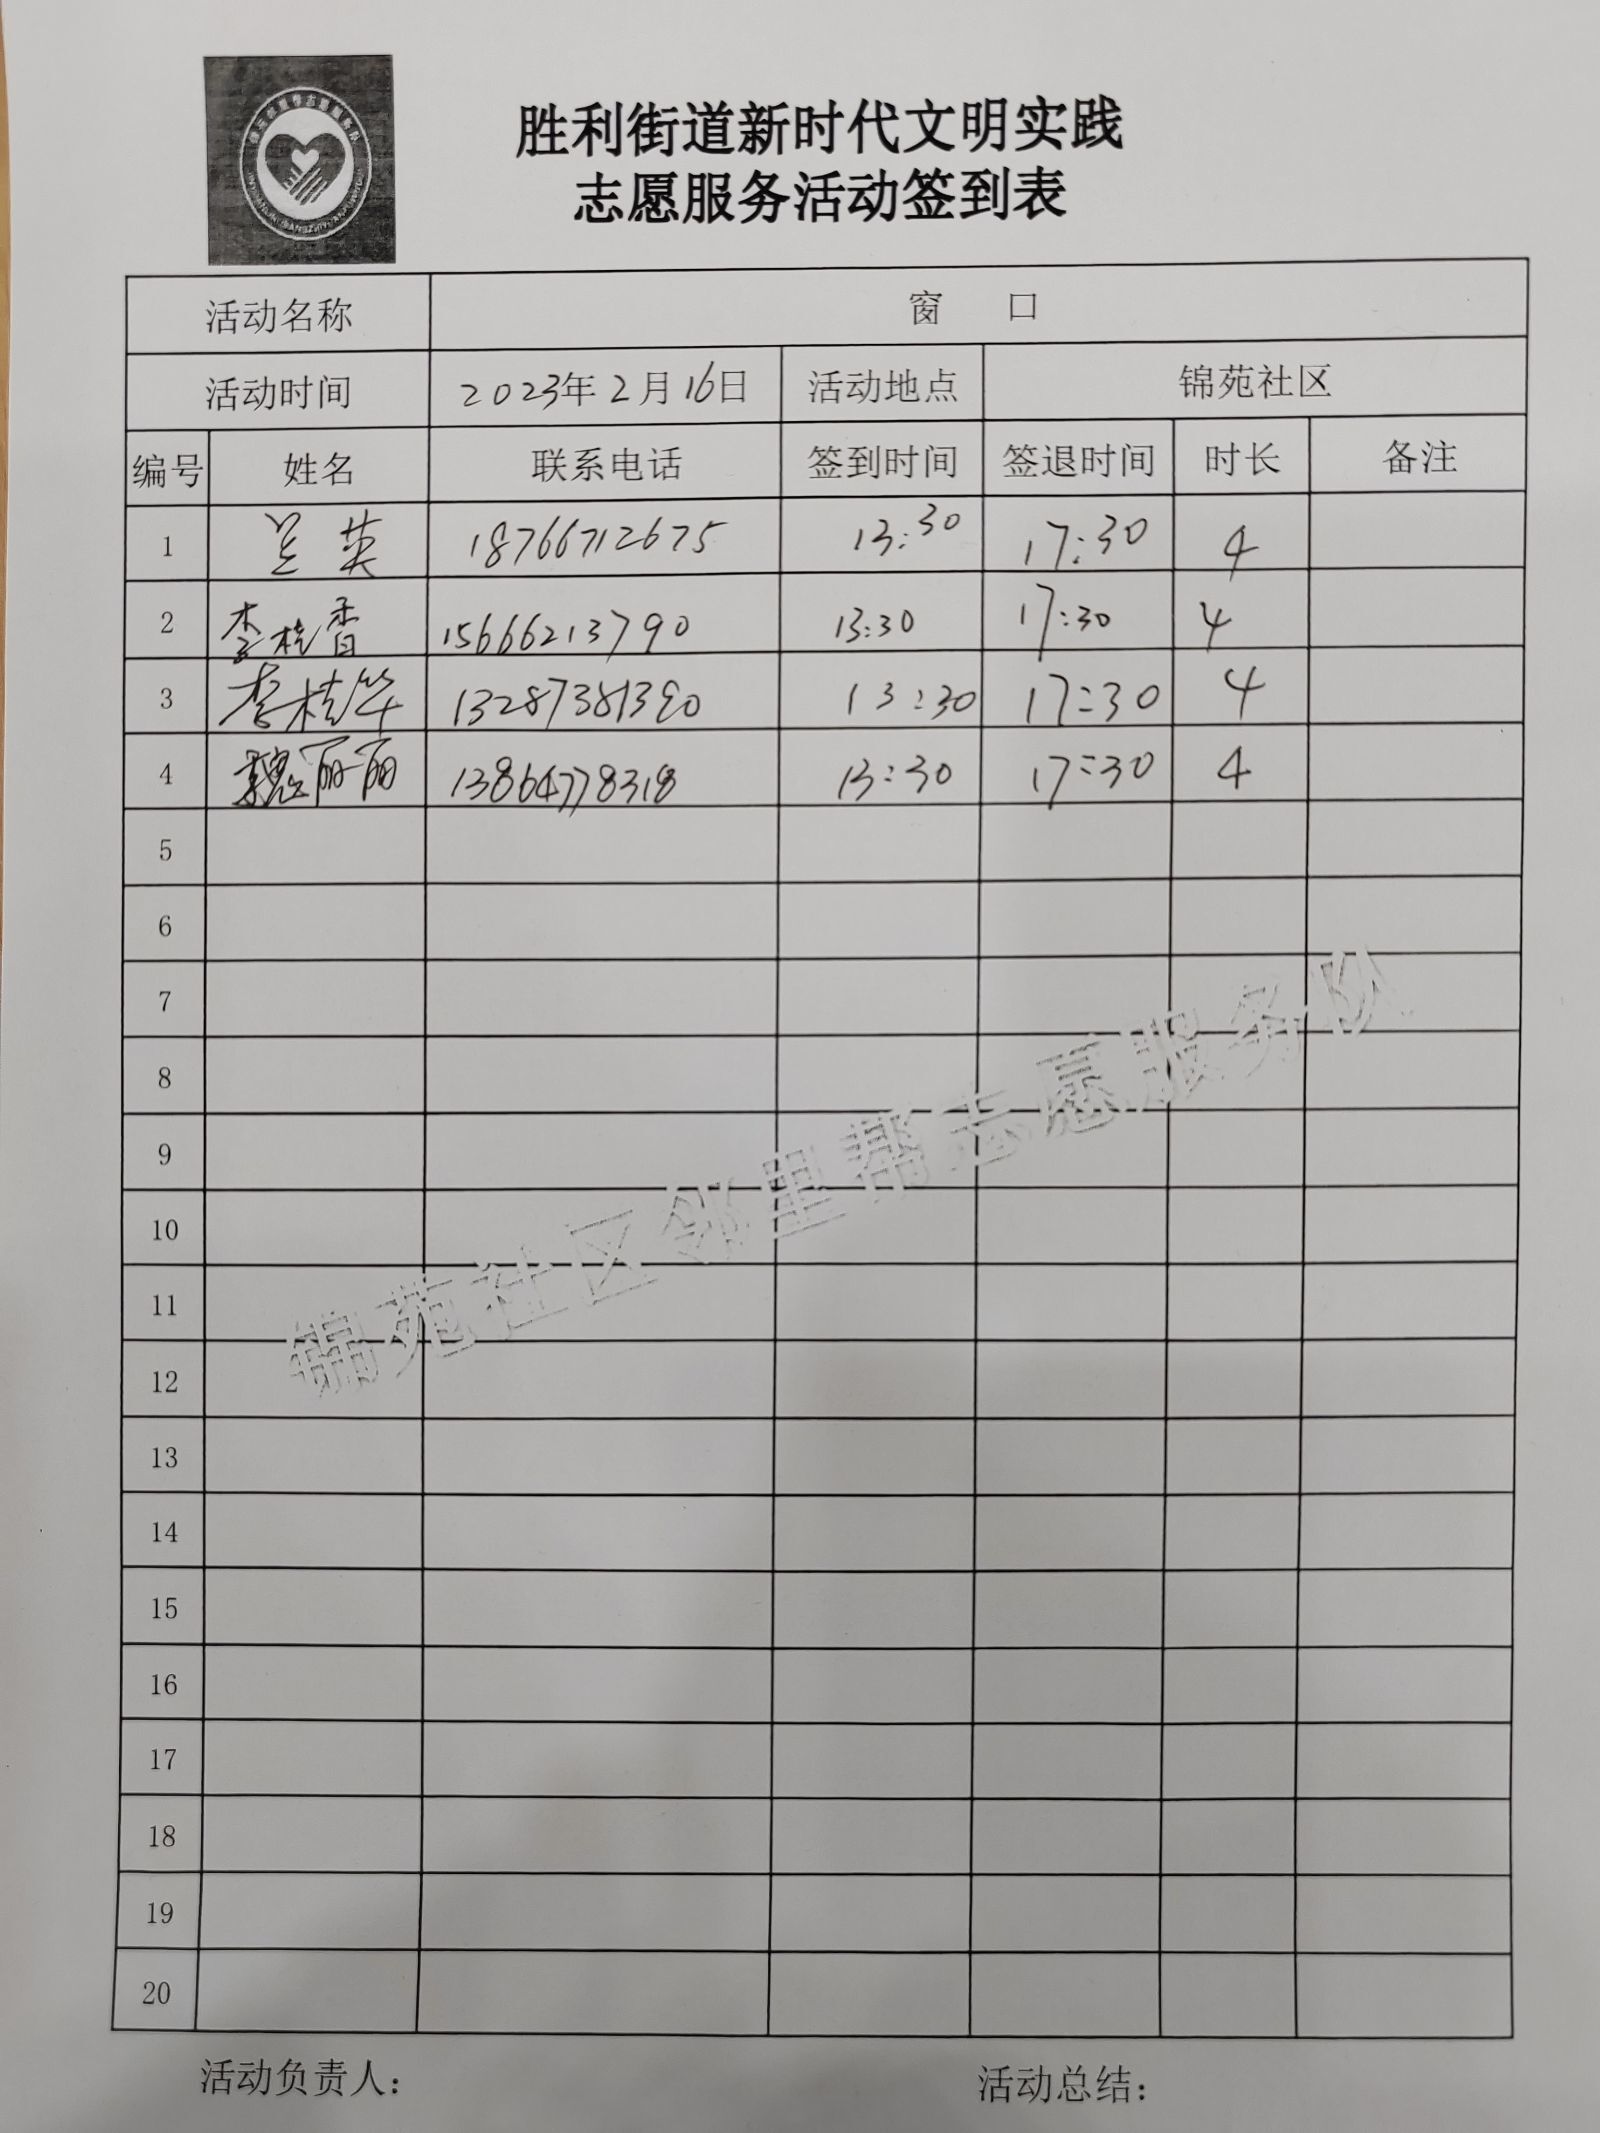 胜利街道新时代文明实践
志愿服务活动签到表
活动名称 窗 口
活动时间 2023年2月16日 活动地点 锦苑社区
编号 姓名 联系电话 签到时间 签退时间 时长 备注
1 兰英 18766712675 13:30 17:30 4
2 李桂香 15666213790 13:30 17:30 4
3 李桂华 13287381390 13:30 17:30 4
4 魏丽丽 13864778318 13:30 17:30 4
5
6
7
8
9
10
11
12
13
14
15
16
17
18
19
20
锦苑社区邻里帮志愿服务队
活动负责人： 活动总结：